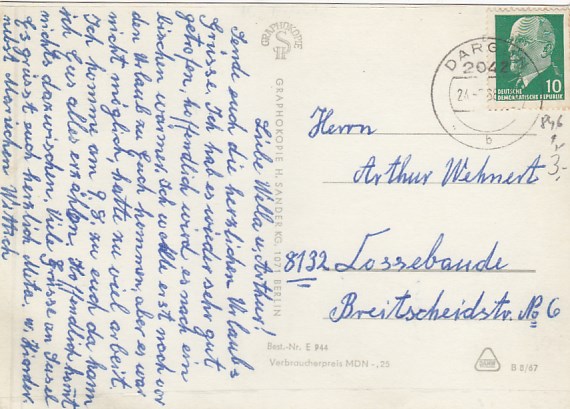 Liebe Wella u. Arthur!
Sende euch die herzlichen Urlaubs
Grüsse. Ich hab es wieder sehr gut
getrofen, hoffendlich wird es noch ein
bischen warmer. Ich wollte erst noch vor
den Urlaub zu Euch kommen, aber es war
nicht möglich hatte zu viel arbeit.
Ich komme am 9.8. zu euch da kann
ich Euch alles erzählen. Hoffendlich komt
nichts dazwischen. Viele Grüsse an Sussel
Es grüsst euch herzlich Mita. u.
nebst Mariechen Wittach
GRAPHOKOPIE
GRAPHOKOPIE H. SANDER KG, 1071 BERLIN
DARG
2042
24.
b
DEUTSCHE
DEMOKRATISCHE REPUBLIK
10
846
1,-
3,-
Herrn
Arthur Wehnert
8132 Cossebaude
Breitscheidstr. No 6
Best.-Nr. E 944
Verbraucherpreis MDN -,25
B 8/67